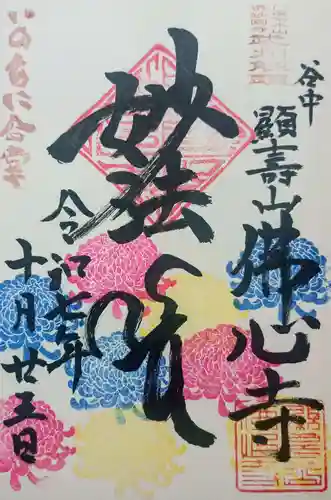 谷中
顯壽山佛心寺
妙法
令和七年
十月廿五日
いのちに合掌